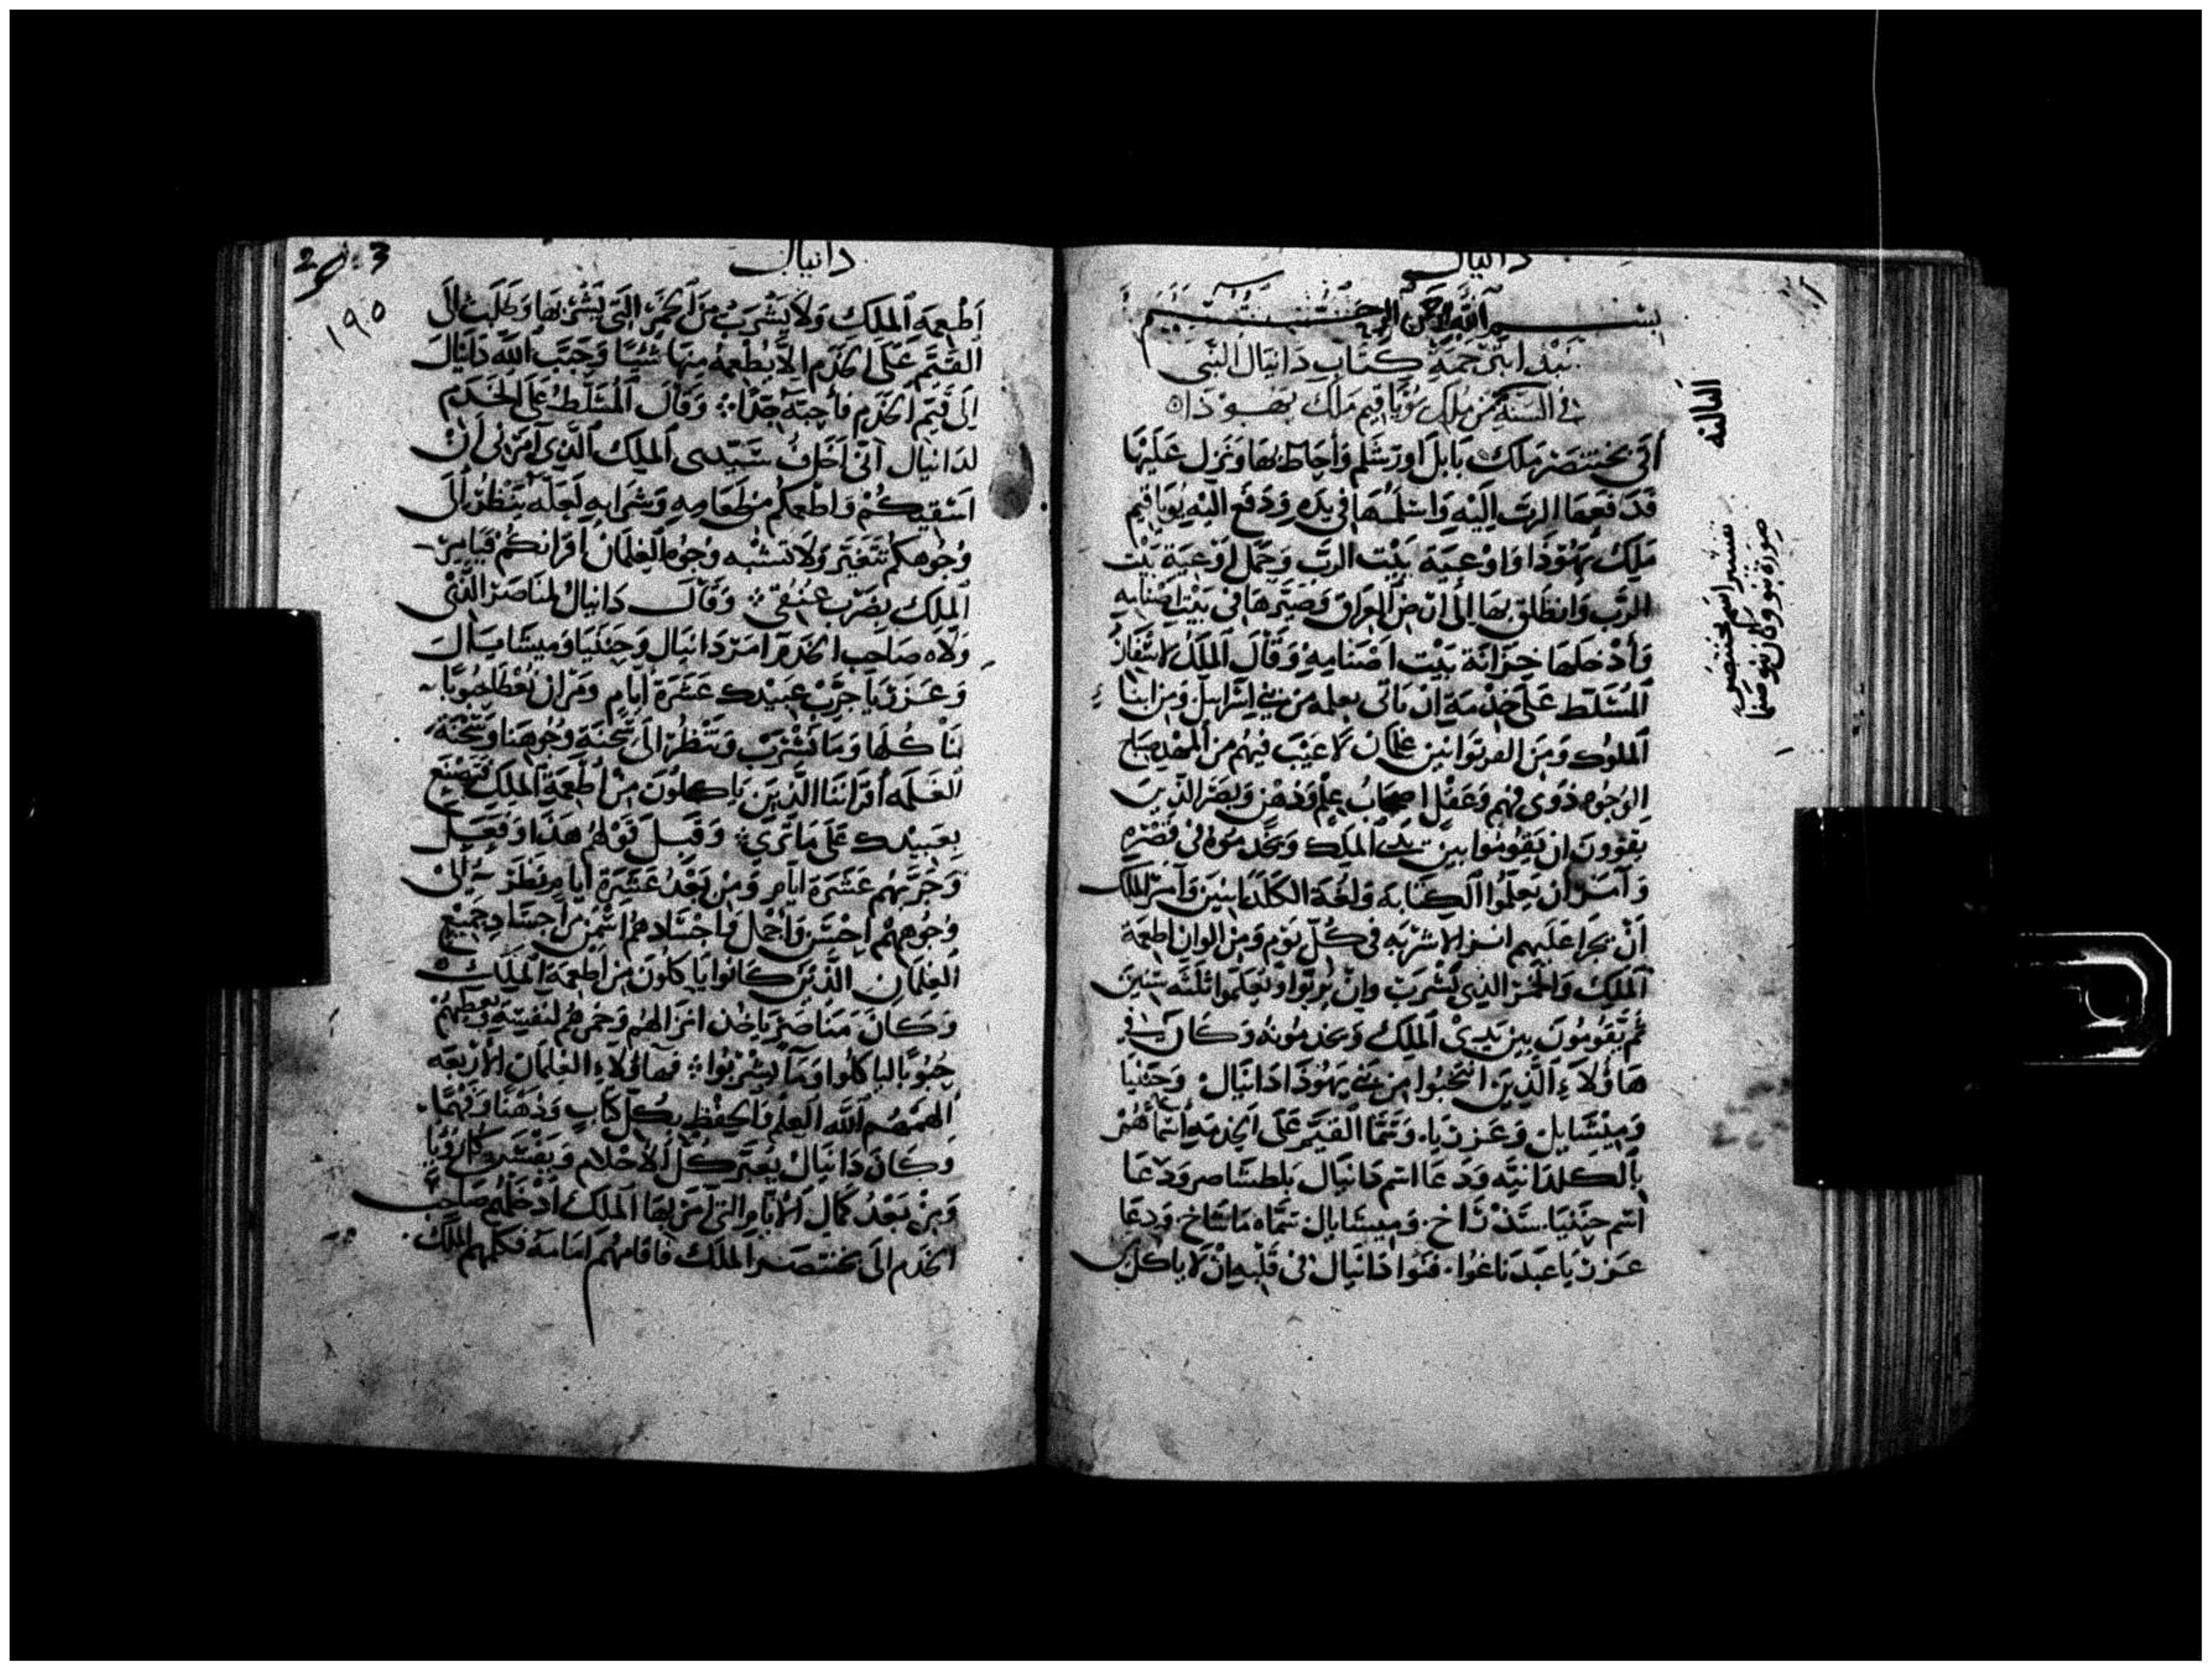 دانيال
بسم الله الرحمن الرحيم
نبدا بترجمة كتاب دانيال النبي
في السنة من ملك يوياقيم ملك يهوذا
الثالثه
أتى بختنصر ملك بابل اورشلم وأحاط بها ونزل عليها
فدفعها الرب إليه واسلمها في يده ودفع اليه يوياقيم
ملك يهوذا واوعية بيت الرب وحمل اوعية بيت
الرب وانطلق بها إلى ارض العراق وصيرها في بيت اصنامه
وأدخلها خزانة بيت اصنامه وقال الملك
المسلط على خدمه ان ياتى من بني اسراييل ومن ابنا
الملوك ومن غلمان لا عيب فيهم صباح
الوجوه ذوى فهم وعقل اصحاب علم وذهن وبصر الذين
يقوون ان يقوموا بين يدى الملك ويخدموه في قصره
وآمر ان يعلموا الكتابة ولغة الكلدانيين وآمر الملك
أن يجرا عليهم في كل يوم ومن الوان اطعمة
الملك والخمر الذي يشرب وان يربوا ويعلموا ثلثه سنين
ثم يقومون بين يدي الملك ويخدمونه وكان في
هاؤلاء الذين انتخبوا من بني يهوذا دانيال وحننيا
وميشايل وعزريا وسما القيم على الخدم أسماهم
بالكلدانيه ودعا اسم دانيال بلطشاصر ودعا
اسم حننيا وميشايل سماه ودعا
عزريا عبدناغوا فنوا دانيال في قلبه ان لا ياكل
تفسير اسم بختنصر
صورة نبو وكان نبو صنما
دانيال
2 3
١٩٥
اطعمة الملك ولا يشرب من الخمر التي يشربها وطلب الى
القيم على الخدم الا يطعمه منها شيا وحبب الله دانيال
إلى قيم الخدم فأحبه جدا وقال المسلط على الخدم
لدانيال اني أخاف سيدى الملك الذي آمرني أن
اسقيكم واطعمكم من طعامه وشرابه لعله ينظر الى
وجوهكم تتغير ولا تشبه وجوه الغلمان أقرانكم فيامر
الملك بضرب عنقي وقال دانيال لمناصر الذي
ولاه صاحب الخدم آمر دانيال وحننيا وميشايل
وعزريا جرب عبيدك عشرة ايام ومر ان حبوبا
لنا كلها وما نشرب وتنظر الى سحنة وجوهنا وسحنة
الغلمه أقراننا الذين ياكلون من أطعمة الملك فتصنع
بعبيدك على ما ترى وقبل قولهم هذا وفعل
وجربهم عشرة ايام ومن بعد عشرة ايام نظر الى
وجوههم احسن وأجمل واجسادهم اسمن من اجساد جميع
الغلمان الذين كانوا ياكلون من اطعمة الملك
وكان مناصر ياخذ انزالهم وخمرهم لنفسه ويعطيهم
حبوبا لياكلوا وما يشربوا فهاؤلاء الغلمان الاربعه
الهمهم الله العلم والحفظ بكل كتاب وذهنا وفهما
وكان دانيال يعبر كل الاحلام ويفسر كل رؤيا
ومن بعد كمال الايام التي آمر بها الملك ادخلهم صاحب
الخدم الى بختنصر الملك فاقامهم امامه فكلمهم الملك